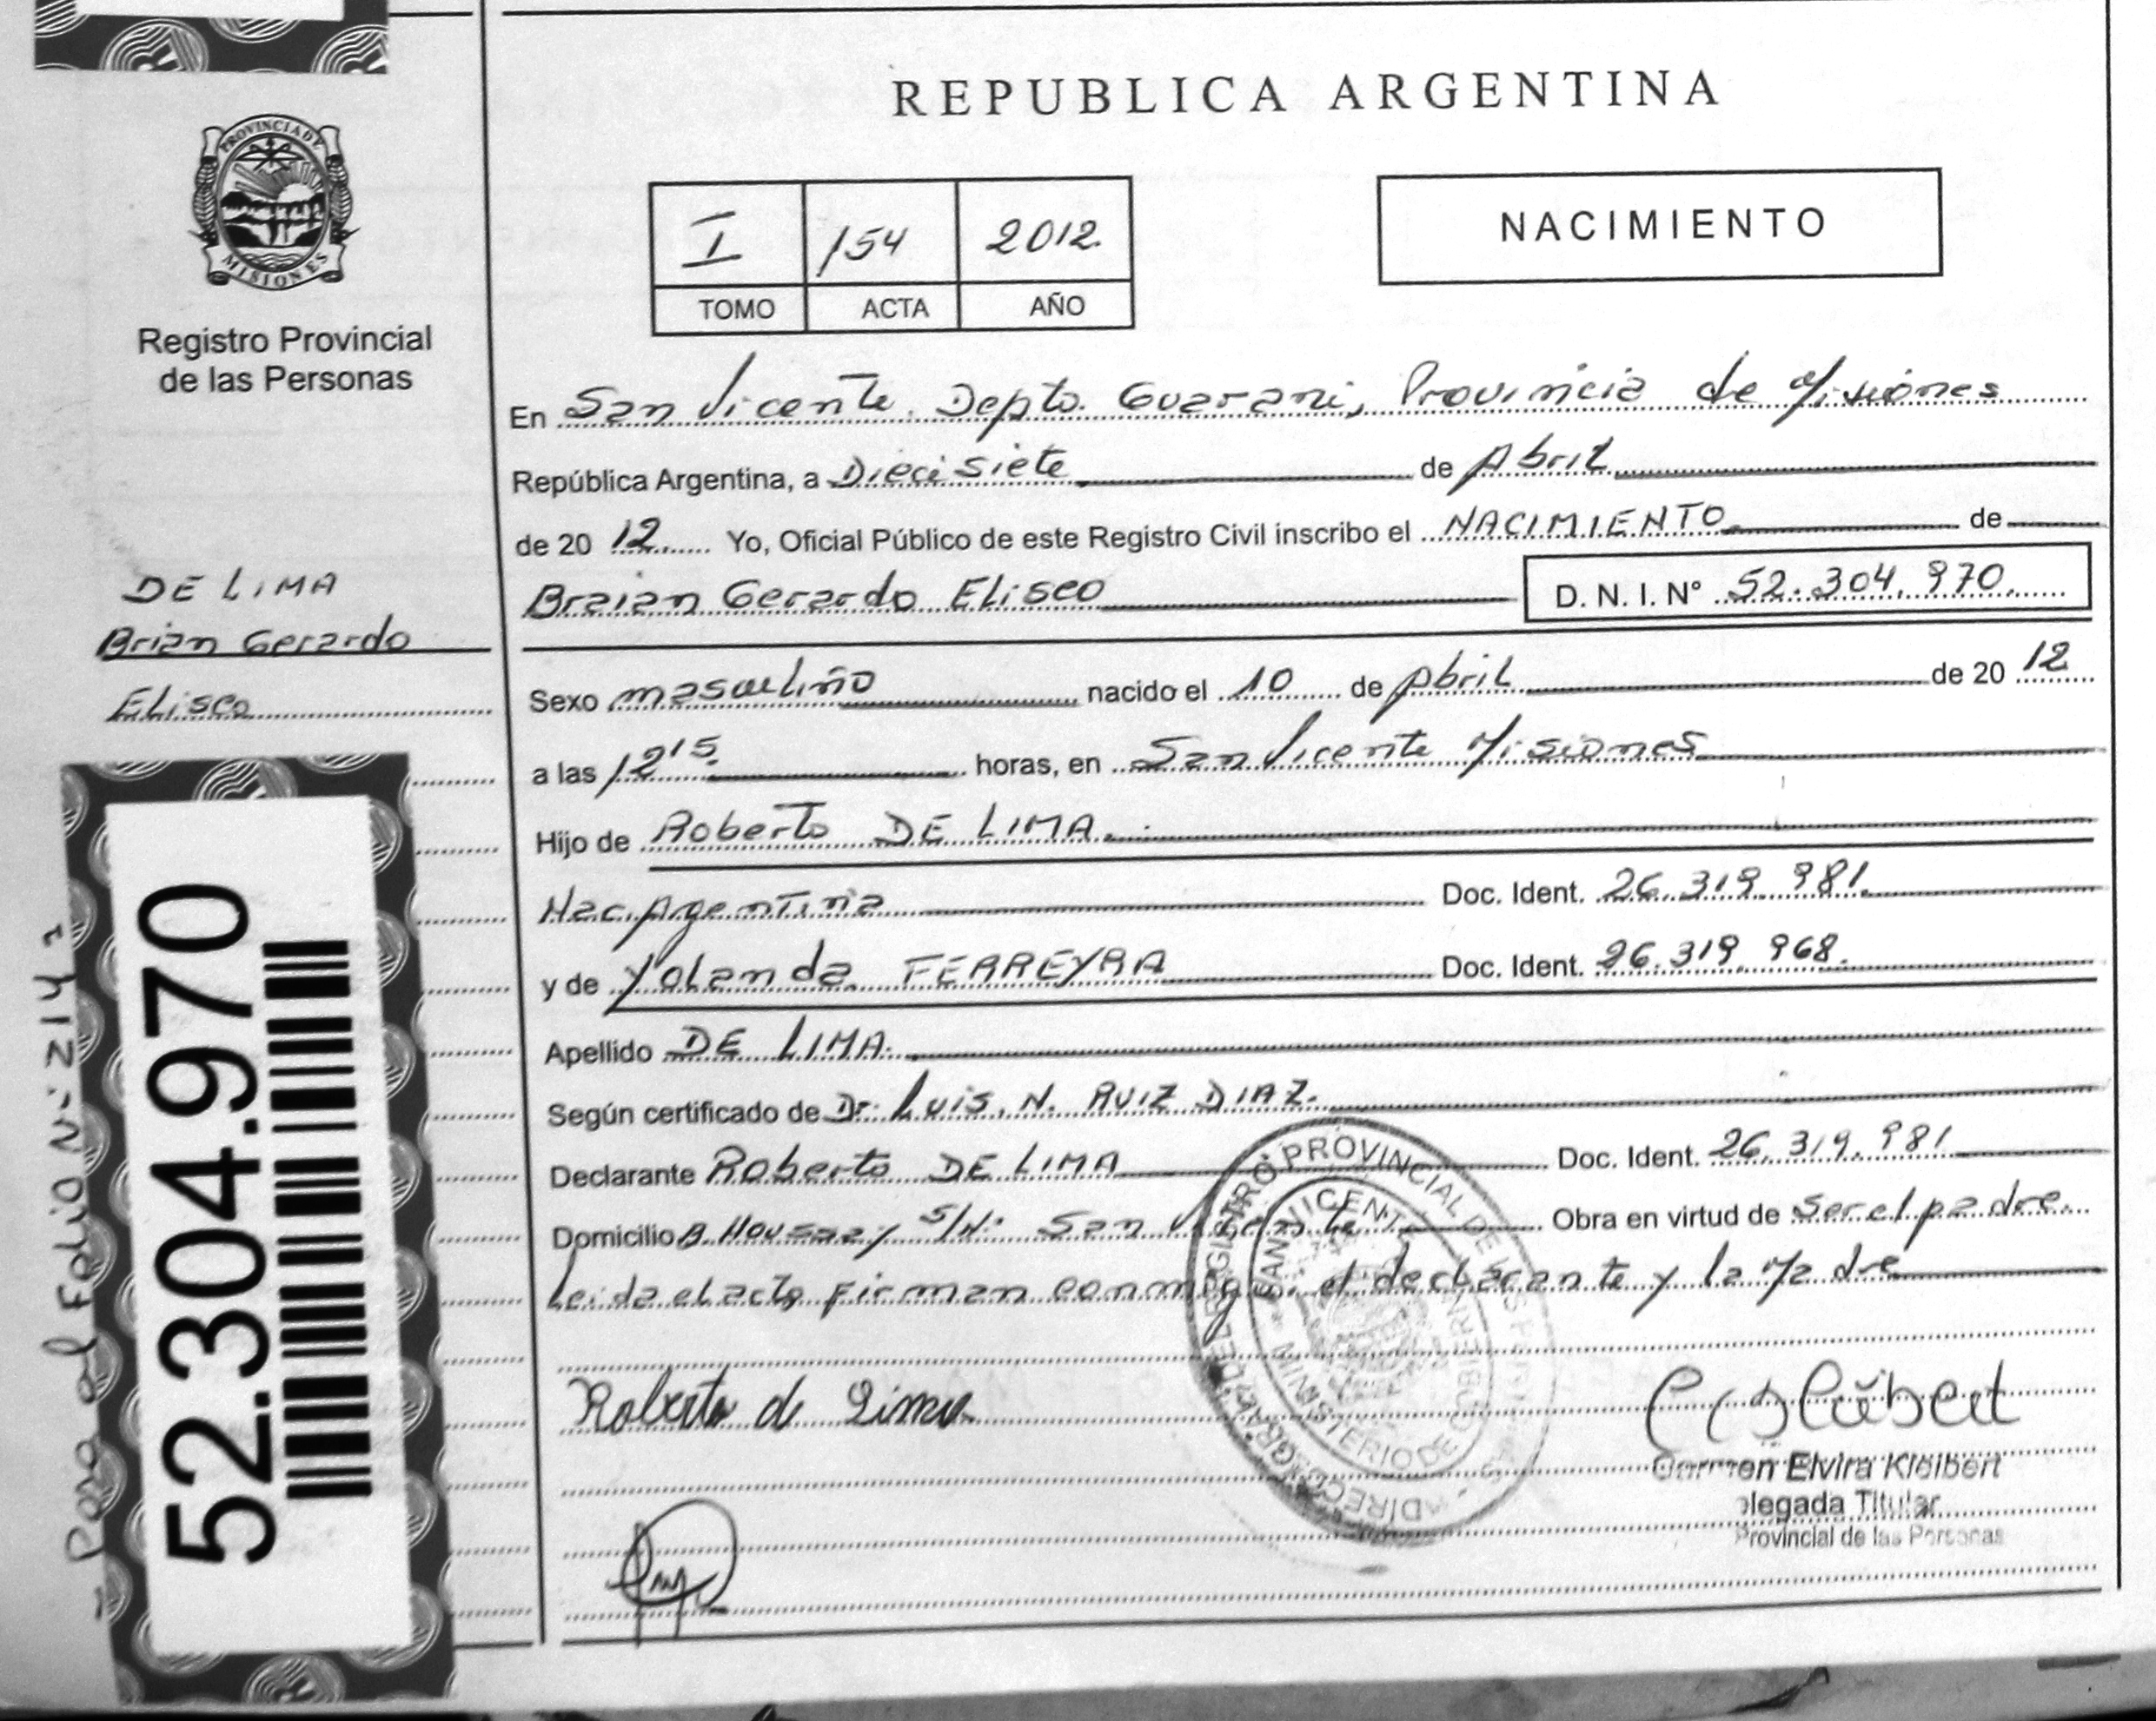 REPUBLICA ARGENTINA
PROVINCIA DE
MISIONES
Registro Provincial
de las Personas
I 154 2012
TOMO ACTA AÑO
NACIMIENTO
En San Vicente Depto. Guarani, Provincia de Misiones
República Argentina, a Diecisiete de Abril
de 20 12 Yo, Oficial Público de este Registro Civil inscribo el NACIMIENTO de
Braian Gerardo Eliseo D. N. I. N° 52.304.970.
DE LIMA
Brian Gerardo
Eliseo
Sexo masculino nacido el 10 de Abril de 20 12
a las 12 15 horas, en San Vicente Misiones
Hijo de Roberto DE LIMA.
Nac. Argentina Doc. Ident. 26.319.981.
y de Yolanda FERREYRA Doc. Ident. 26.319.968.
Apellido DE LIMA.
Según certificado de Dr. Luis. N. RUIZ DIAZ.
Declarante Roberto DE LIMA Doc. Ident. 26.319.981
Domicilio B. Houssay S/N: San Vicente Obra en virtud de ser el padre.
Leida el acta firman conmigo el declarante y la Madre
Roberto de Lima
Carmen Elvira Kleibert
legada Titular
Provincial de las Personas
REGISTRO PROVINCIAL DE LAS
SAN VICENTE
MINISTERIO DE GOBIERNO
52.304.970
- Pasa al Folio N: 214